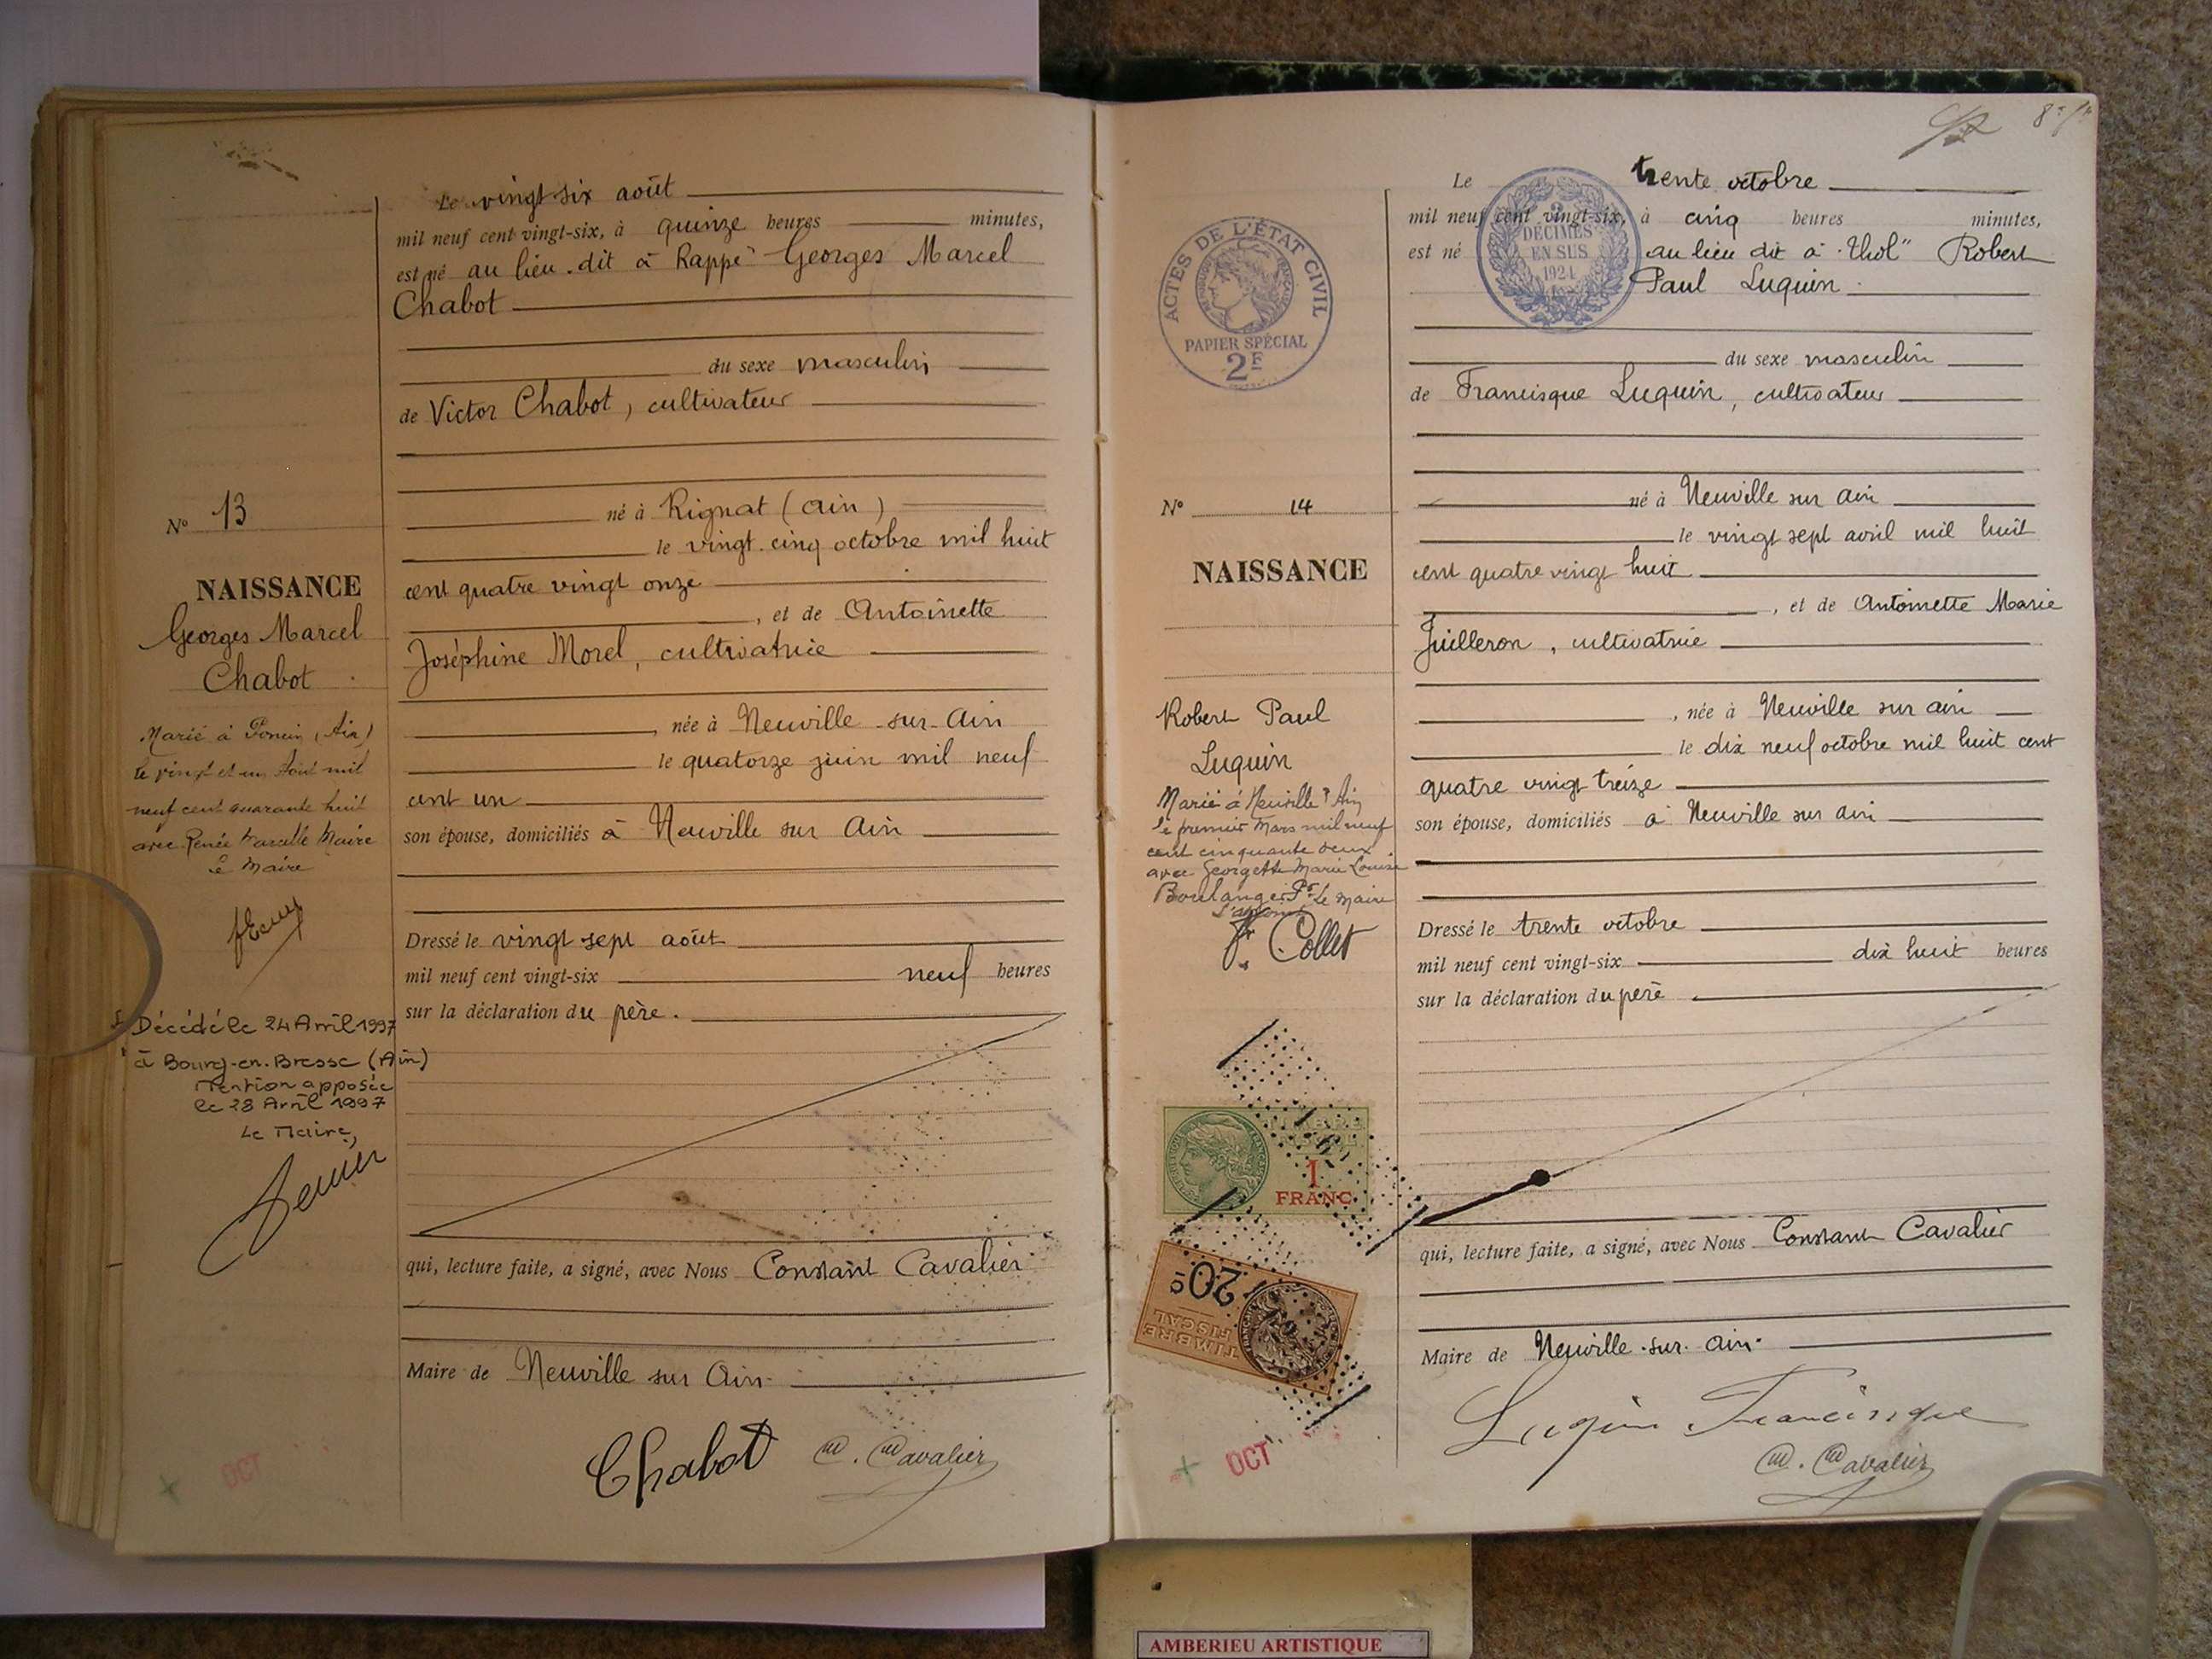 Le vingt six août
mil neuf cent vingt-six, à quinze heures minutes,
est né au lieu dit à Rappe Georges Marcel
Chabot
du sexe masculin
de Victor Chabot, cultivateur
né à Rignat (Ain)
le vingt-cinq octobre mil huit
cent quatre vingt onze
, et de Antoinette
Joséphine Morel, cultivatrice
, née à Neuville-sur-Ain
le quatorze juin mil neuf
cent un
son épouse, domiciliés à Neuville sur Ain
Dressé le vingt sept août
mil neuf cent vingt-six neuf heures
sur la déclaration du père.
qui, lecture faite, a signé, avec Nous Constant Cavalier
Maire de Neuville sur Ain
Chabot C. Cavalier
N° 13
NAISSANCE
Georges Marcel
Chabot
Marié à Poncin (Ain)
le vingt et un Août mil
neuf cent quarante huit
avec Renée Marcelle Maire
le Maire
Décédé le 24 Avril 1997
à Bourg-en-Bresse (Ain)
Mention apposée
le 28 Avril 1997
Le Maire,
OCT
Le trente octobre
mil neuf cent vingt-six, à cinq heures minutes,
est né au lieu dit à "Thol" Robert
Paul Luquin
du sexe masculin
de Francisque Luquin, cultivateur
né à Neuville sur ain
le vingt sept avril mil huit
cent quatre vingt huit
, et de Antoinette Marie
Juilleron, cultivatrice
, née à Neuville sur ain
le dix neuf octobre mil huit cent
quatre vingt treize
son épouse, domiciliés à Neuville sur ain
Dressé le trente octobre
mil neuf cent vingt-six dix huit heures
sur la déclaration du père
qui, lecture faite, a signé, avec Nous Constant Cavalier
Maire de Neuville-sur-ain
Luquin Francisque
C. Cavalier
2
DÉCIMES
EN SUS
1924
ACTES DE L'ÉTAT CIVIL
PAPIER SPÉCIAL
2F
N° 14
NAISSANCE
Robert Paul
Luquin
Marié à Neuville s/ Ain
le premier Mars mil neuf
cent cinquante deux
avec Georgette Marie Louise
Boulanger Pr Le Maire
L'adjoint
F. Collet
TIMBRE
FISCAL
1
FRANC
20c
TIMBRE
FISCAL
OCT
AMBERIEU ARTISTIQUE